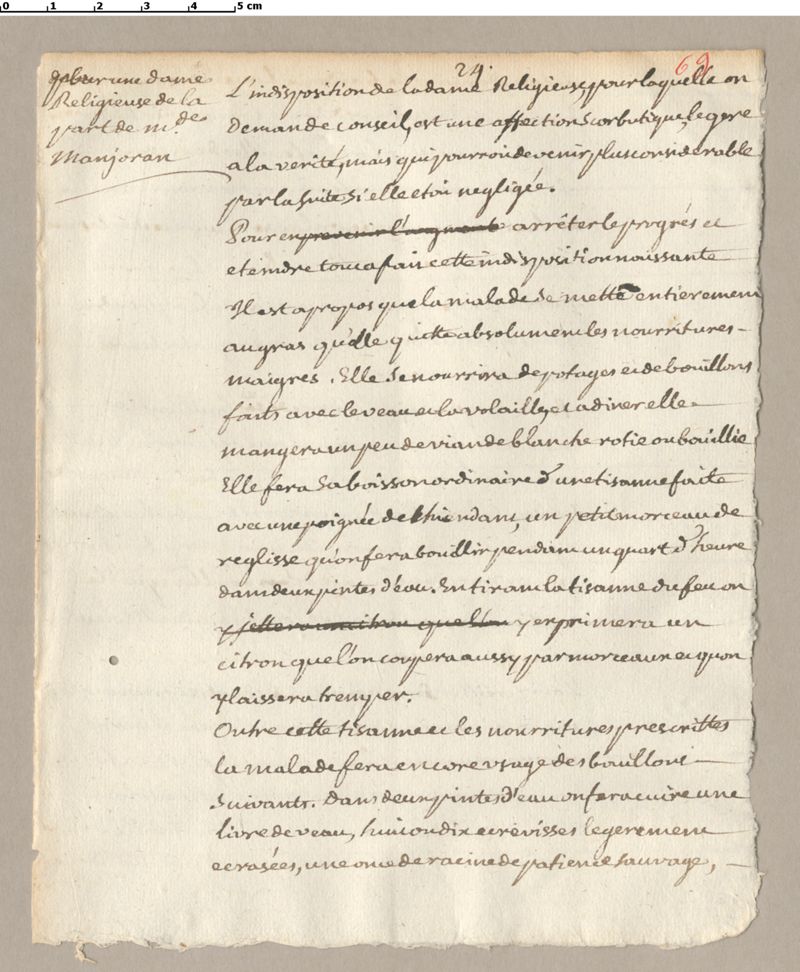 0 1 2 3 4 5 cm
24.
69
pour une dame
Religieuse de la
part de m.de
Manjoran
L'indisposition de la dame Religieuse pour laquelle on
demande conseil, est une affection Scorbutique, legere
a la verité, mais qui pourroit devenir plus considerable
par la suite Si elle etoit negligée.
Pour en prevenir l'augmente arrêter le progrés et
eteindre tout a fait cette indisposition naissante
Il est a propos que la malade se mette entierement
au gras qu'elle quitte absolument les nourritures
maigres. Elle Se nourrira de potages et de bouillons
faits avec le veau et la volaille, et a diner elle
mangera un peu de viande blanche rotie ou bouillie
Elle fera Sa boisson ordinaire d'une tisanne faite
avec une poignée de chiendant, un petit morceau de
reglisse qu'on fera bouillir pendant un quart d'heure
dans deux pintes d'eau. En tirant la tisanne du feu on
y jettera un citron que l'on y exprimera un
citron que l'on coupera aussy par morceaux et qu'on
y laissera tremper.
Outre cette tisanne et les nourritures prescrittes
la malade fera encore usage des bouillons
Suivants. Dans deux pintes d'eau on fera cuire une
livre de veau, huit ou dix ecrevisses legerement
ecrasées, une once de racine de patience sauvage,